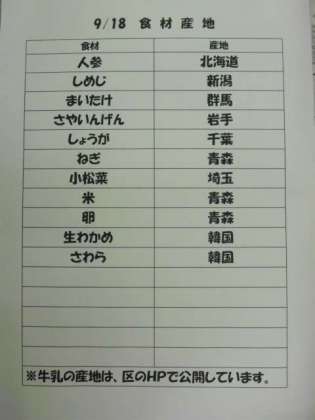 9/18 食材産地
食材 産地
人参 北海道
しめじ 新潟
まいたけ 群馬
さやいんげん 岩手
しょうが 千葉
ねぎ 青森
小松菜 埼玉
米 青森
卵 青森
生わかめ 韓国
さわら 韓国
※牛乳の産地は、区のHPで公開しています。